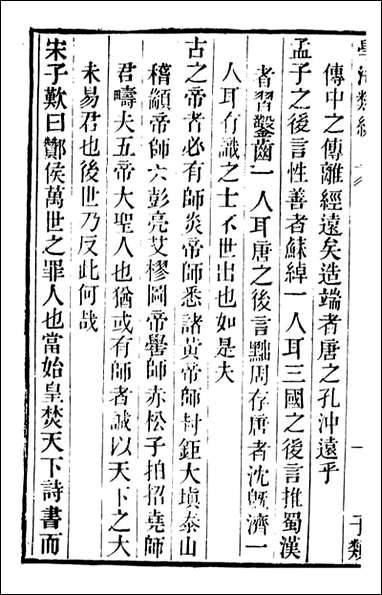 傳中之傳離經遠矣造端者唐之孔沖遠乎
孟子之後言性善者蘇綽一人耳三國之後言推蜀漢
者習鑿齒一人耳唐之後言黜周存唐者沈旣濟一
人耳有識之士不世出也如是夫
古之帝者必有師炎帝師悉諸黃帝師封鉅大塡泰山
稽顓帝師六彭亮艾樛圖帝嚳師赤松子拍招堯師
君疇夫五帝大聖人也猶或有師者誠以天下之大
未易君也後世乃反此何哉
宋子歎曰酇侯萬世之罪人也當始皇焚天下詩書而
子類